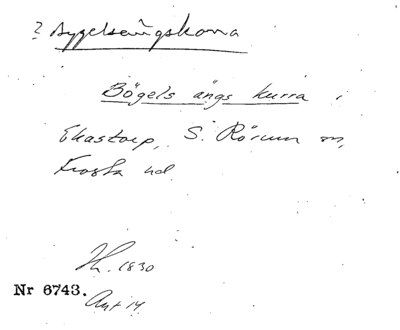 ? Bygelsängskorra
Bögels ängs kurra i
Ekastorp, S. Rörum sn,
Frosta hd.
Lh. 1830
Nr 6743.
Akt 14